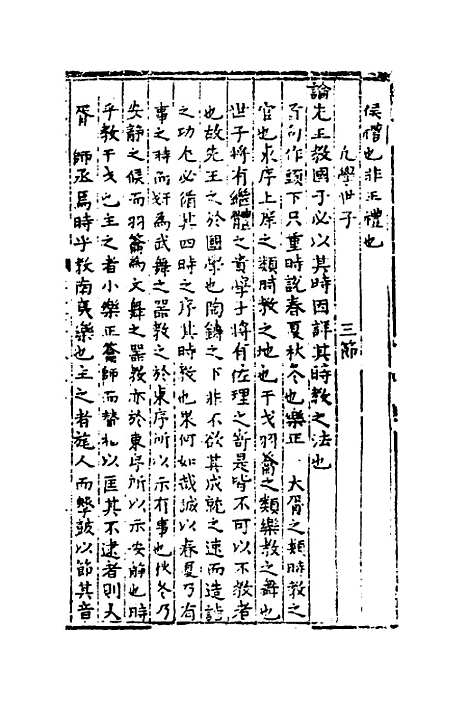 侯僭也非正禮也
凡學世子　　三節
論先王教國子必以其時因詳其時教之法也
首句作頭下只重時說春夏秋冬也樂正　大胥之類時教之
官也東序上庠之類時教之地也干戈羽籥之類樂教之舞也
世子將有繼體之貴學子將有佐理之寄是皆不可以不教者
也故先王之於國學也陶鑄之下非不欲其成就之速而造詣
之功尤必循其四時之序其時教也果何如哉誠以春夏乃有
事之時而干戈為武舞之器教之於東序所以示有事也秋冬乃
安靜之候而羽籥為文舞之器教亦於東序所以示安靜也時
乎教干戈也主之者小樂正籥師而贊相以匡其不逮者則大
胥　師丞焉時乎教南夷樂也主之者旄人而擊鼓以節其音